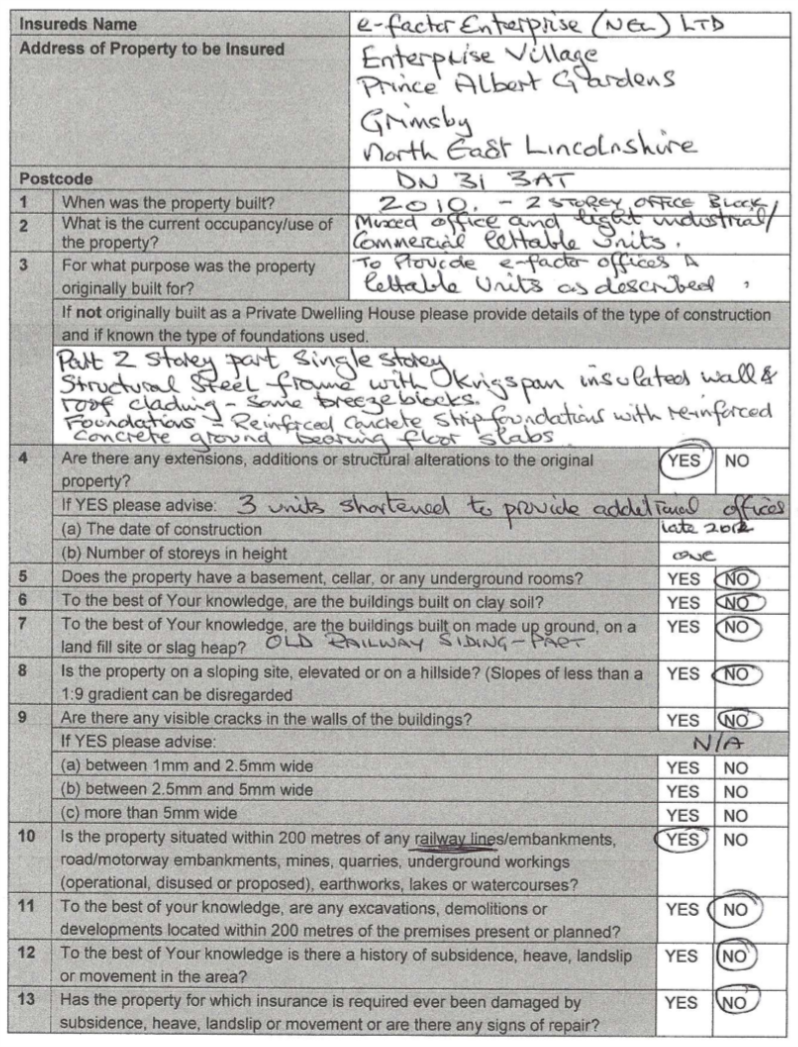 Insureds Name e-factor Enterprise (NEL) LTD
Address of Property to be Insured Enterprise Village
Prince Albert Gardens
Grimsby
North East Lincolnshire
Postcode DN 31 3AT
1 When was the property built? 2010. - 2 STOREY OFFICE BLOCK/
2 What is the current occupancy/use of Mixed office and light industrial/
the property? Commercial lettable units.
3 For what purpose was the property To Provide e-factor offices &
originally built for? lettable units as described.
If not originally built as a Private Dwelling House please provide details of the type of construction
and if known the type of foundations used.
Part 2 Storey part Single storey
Structural Steel frame with Kingspan insulated wall &
roof clading - some breezeblocks.
Foundations - Reinforced Concrete Strip foundations with reinforced
concrete ground bearing floor slabs
4 Are there any extensions, additions or structural alterations to the original YES NO
property?
If YES please advise: 3 units shortened to provide additional offices
(a) The date of construction late 2012
(b) Number of storeys in height one
5 Does the property have a basement, cellar, or any underground rooms? YES NO
6 To the best of Your knowledge, are the buildings built on clay soil? YES NO
7 To the best of Your knowledge, are the buildings built on made up ground, on a YES NO
land fill site or slag heap? OLD RAILWAY SIDING - PART
8 Is the property on a sloping site, elevated or on a hillside? (Slopes of less than a YES NO
1:9 gradient can be disregarded
9 Are there any visible cracks in the walls of the buildings? YES NO
If YES please advise: N/A
(a) between 1mm and 2.5mm wide YES NO
(b) between 2.5mm and 5mm wide YES NO
(c) more than 5mm wide YES NO
10 Is the property situated within 200 metres of any railway lines/embankments, YES NO
road/motorway embankments, mines, quarries, underground workings
(operational, disused or proposed), earthworks, lakes or watercourses?
11 To the best of your knowledge, are any excavations, demolitions or YES NO
developments located within 200 metres of the premises present or planned?
12 To the best of Your knowledge is there a history of subsidence, heave, landslip YES NO
or movement in the area?
13 Has the property for which insurance is required ever been damaged by YES NO
subsidence, heave, landslip or movement or are there any signs of repair?